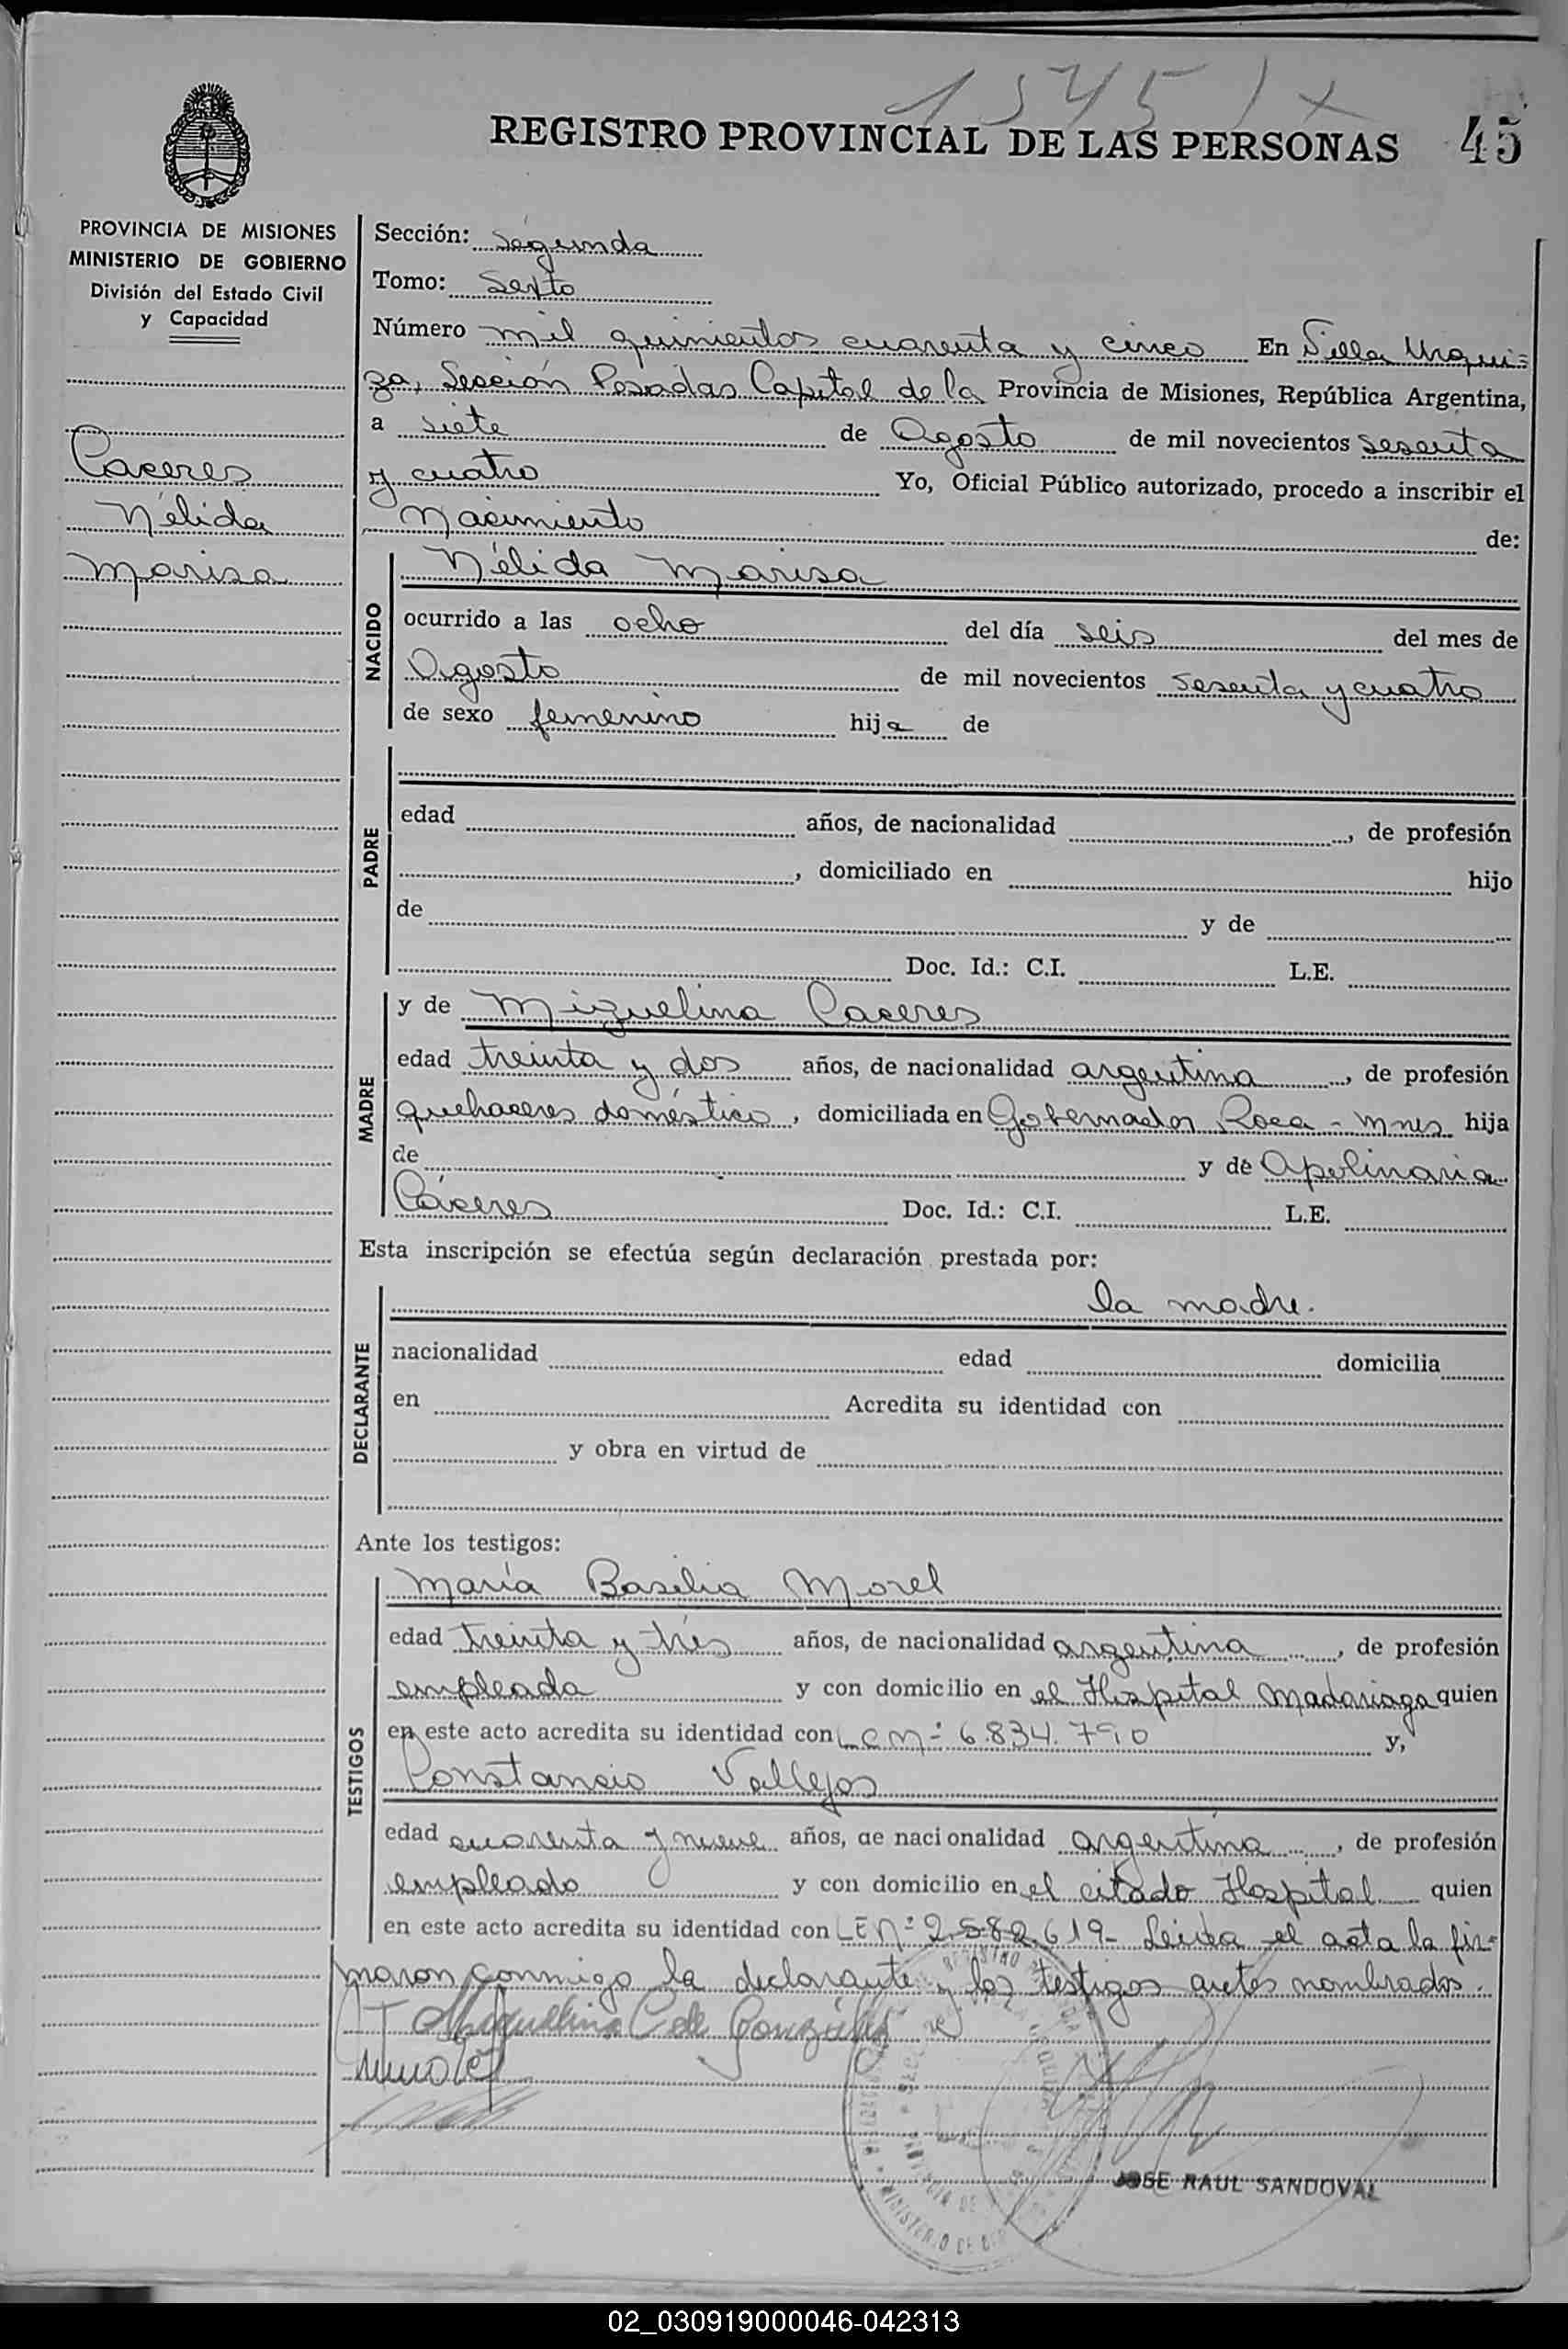 1545/X
REGISTRO PROVINCIAL DE LAS PERSONAS 45
PROVINCIA DE MISIONES
MINISTERIO DE GOBIERNO
División del Estado Civil
y Capacidad
Caceres
Nélida
Marisa
Sección: Segunda
Tomo: Sexto
Número mil quinientos cuarenta y cinco En Villa Urqui=
za, Sección Posadas Capital de la Provincia de Misiones, República Argentina,
a siete de Agosto de mil novecientos sesenta
y cuatro Yo, Oficial Público autorizado, procedo a inscribir el
Nacimiento de:
NACIDO
Nélida Marisa
ocurrido a las ocho del día seis del mes de
Agosto de mil novecientos sesenta y cuatro
de sexo femenino hija de
PADRE
edad años, de nacionalidad , de profesión
, domiciliado en hijo
de y de
Doc. Id.: C.I. L.E.
MADRE
y de Miguelina Caceres
edad treinta y dos años, de nacionalidad argentina , de profesión
quehaceres doméstico , domiciliada en Gobernador Roca - Mnes hija
de y de Apolinaria
Cáceres Doc. Id.: C.I. L.E.
Esta inscripción se efectúa según declaración prestada por:
DECLARANTE
la madre.
nacionalidad edad domicilia
en Acredita su identidad con
y obra en virtud de
Ante los testigos:
TESTIGOS
María Basilia Morel
edad treinta y tres años, de nacionalidad argentina , de profesión
empleada y con domicilio en el Hospital Madariaga quien
en este acto acredita su identidad con L C Nº 6.834.790 y,
Constancio Vallejos
edad cuarenta y nueve años, de nacionalidad argentina , de profesión
empleado y con domicilio en el citado Hospital quien
en este acto acredita su identidad con LE Nº 2.582.619- Leída el acta la fir=
maron conmigo la declarante y los testigos antes nombrados.
Miguelina C de González
JOSE RAUL SANDOVAL
02_030919000046-042313